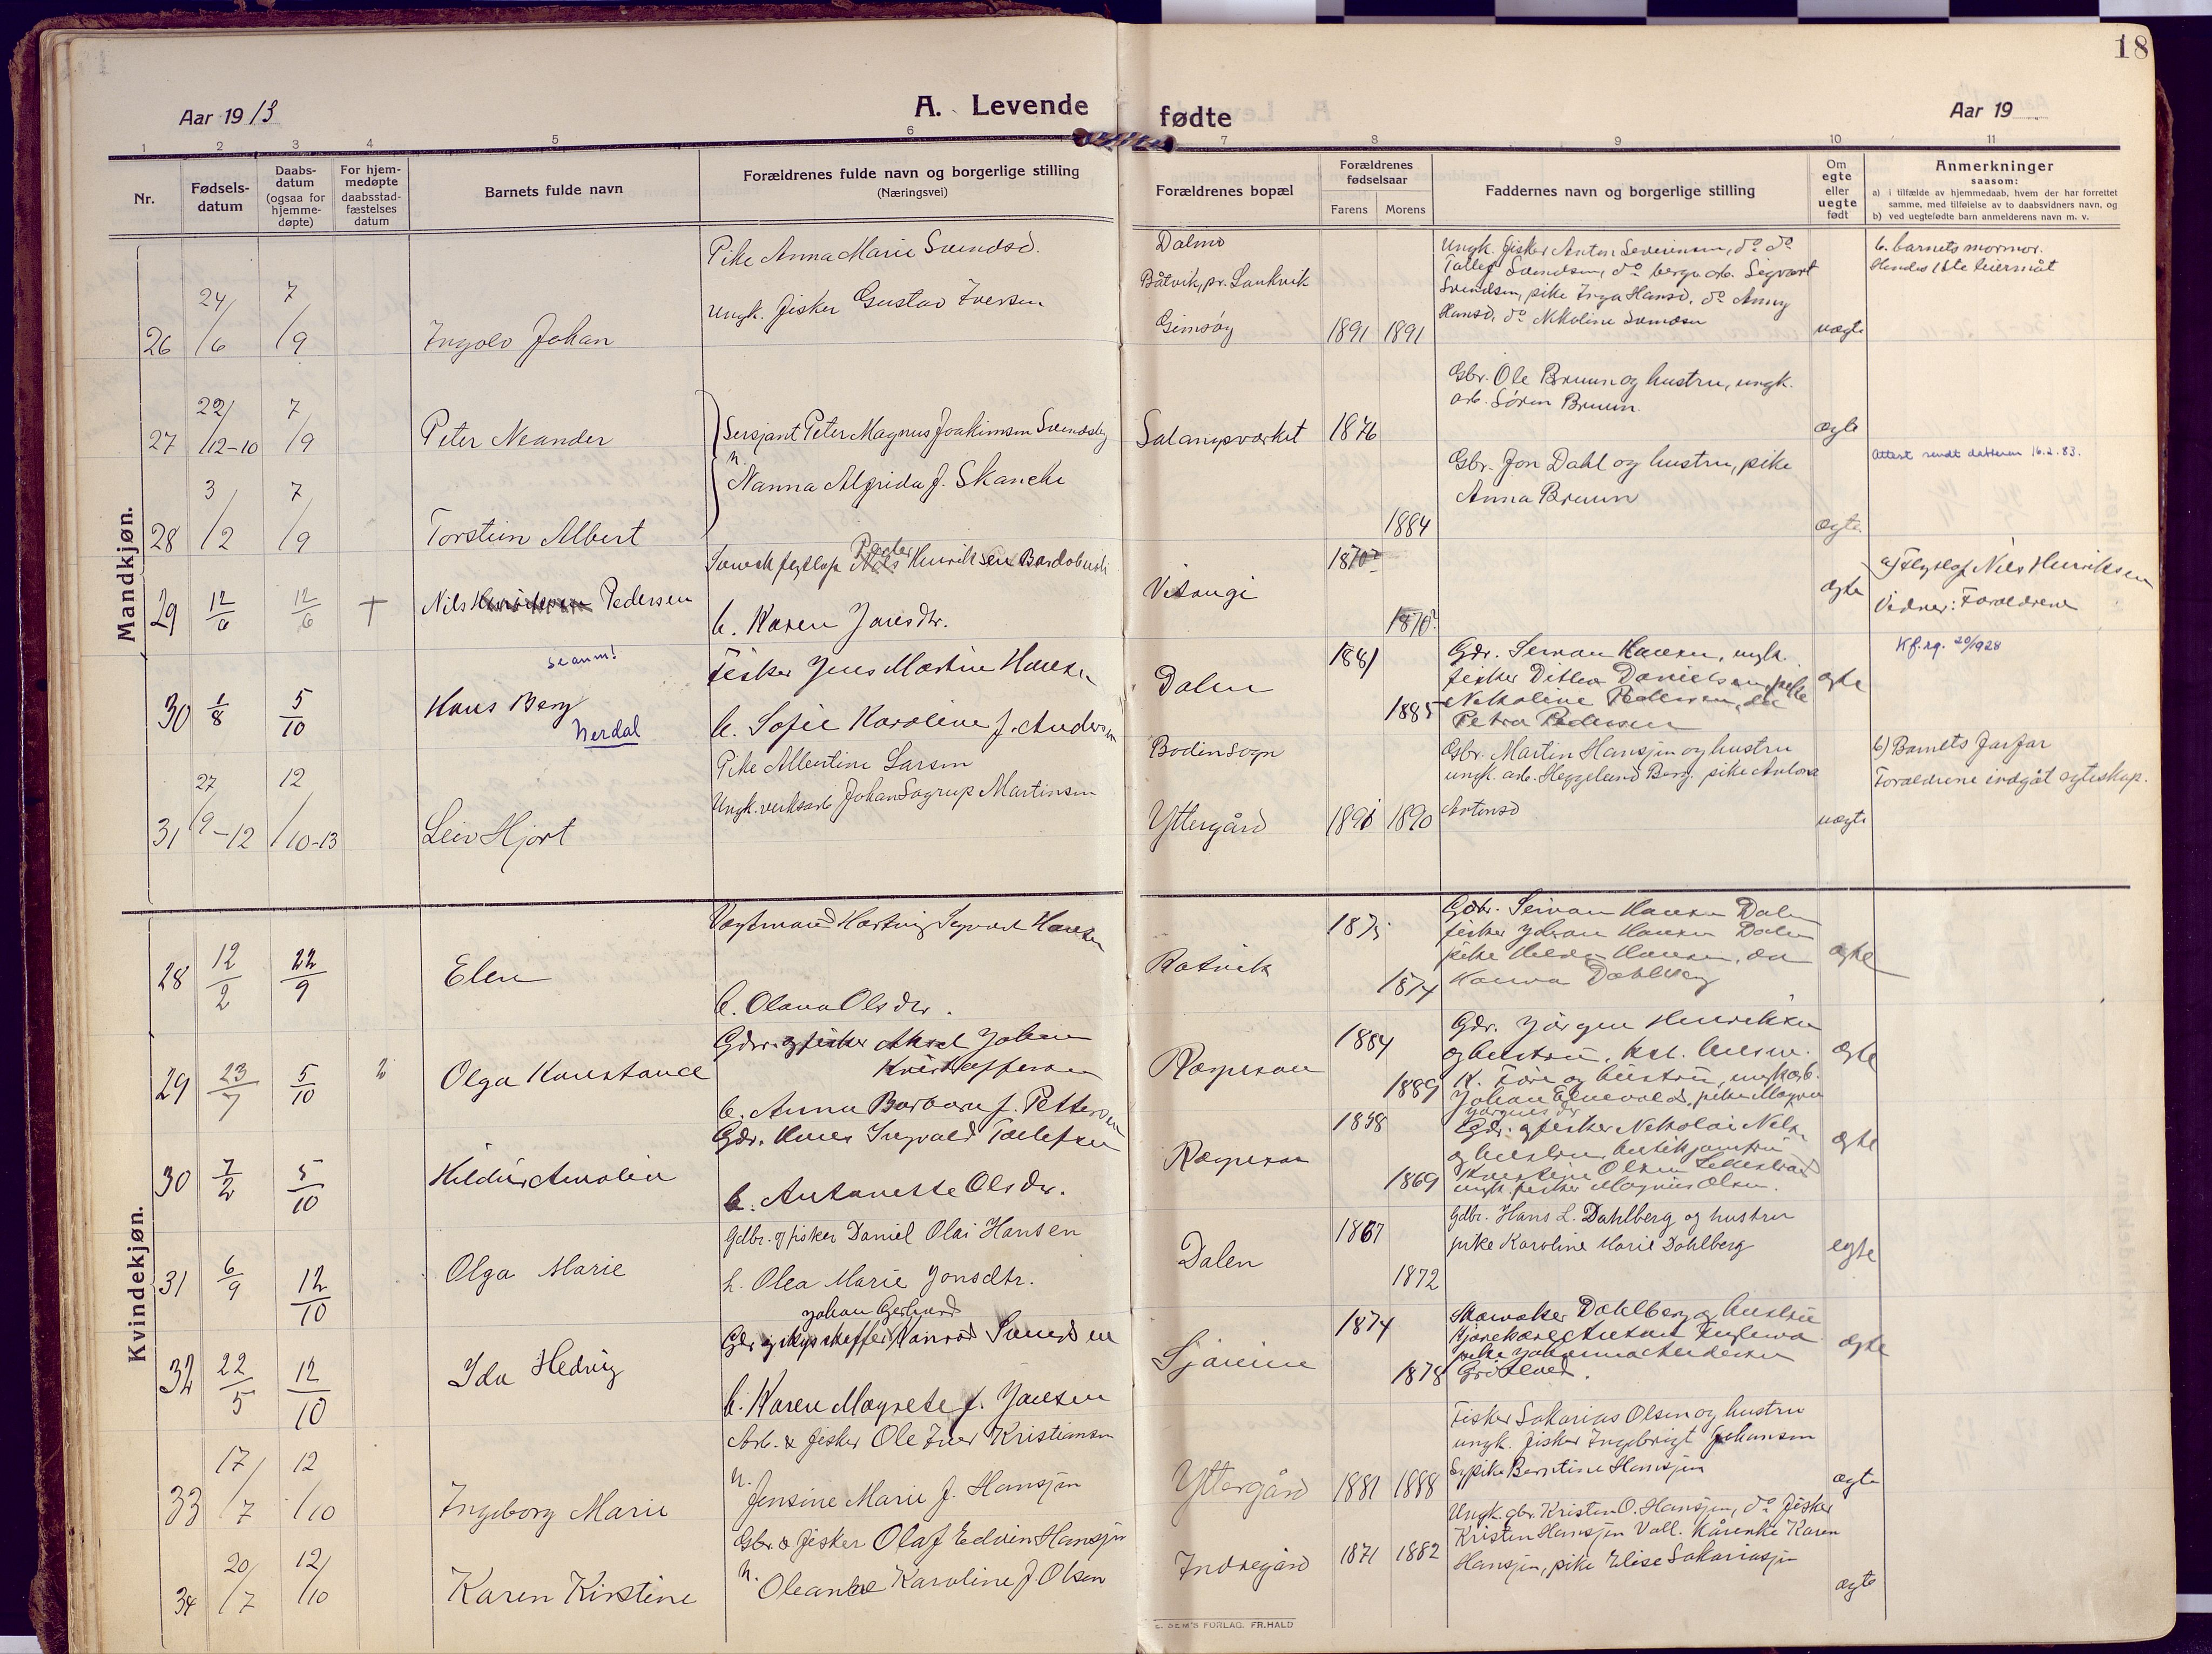 18
Aar 1913
A. Levende
fødte
Aar 19
1 2 3 4 5 6 7 8 9 10 11
Nr.
Fødsels-
datum
Daabs-
datum
(ogsaa for
hjemme-
døpte)
For hjem-
medøpte
daabsstad-
fæstelses
datum
Barnets fulde navn
Forældrenes fulde navn og borgerlige stilling
(Næringsvei)
Forældrenes bopæl
Forældrenes
fødselsaar
Farens Morens
Faddernes navn og borgerlige stilling
Om
egte
eller
uegte
født
Anmerkninger
saasom:
a) i tilfælde av hjemmedaab, hvem der har forrettet
samme, med tilføielse av to daabsvidners navn, og
b) ved uegtefødte barn anmelderens navn m. v.
Mandkjøn.
26 24/6 7/9 Ingolv Johan
Pike Anna Marie Svendsd.
Ungk. fisker Gustav Iversen
Dalmo
Båtvik, pr. Sankvik
Gimsøy 1891 1891
Ungk. fisker Anton Severinsen, do do
Tollef Svendsen, do bergv. arb. Sigvart
Svendsen, pike Inga Hansd. do Anny
Hansd. do Nikoline
uægte
b. barnets mormor.
Hendes 1ste leiermåt
27 22/12-10 7/9 Peter Neander
Sersjant Peter Magnus Joakimsen
Salangsverket 1876
Gbr. Ole Bruun og hustru, ungk.
arb. Sören Bruun.
ægte
Attest sendt datteren 16.2.83.
28 3/2 7/9 Torstein Albert
h. Nanna Algrida f. Skancke
1884
Gbr. Jon Dahl og hustru, pike
Anna Bruun
ægte
29 12/6 12/6 + Nils Pedersen
Svensk flytlap Peder Henriksen
h. Karen Jonsdtr.
Vitangi 1870? 1870?
ægte
a) Flytlap Nils Henriksen
Vidner: Forældrene
30 1/8 5/10 Hans Berg
se anm!
Nerdal
Fisker Jens Martin Hansen
h. Sofie Karoline f. Andersen
Dalen 1881 1885
Gdr. Hansen, ungk.
fisker Ditlev Danielsen, pike
Nikoline Pedersen, do
Petra Pedersen
ægte
Kf. rg. 20/1928
31 27/9-12 12/10-13 Leiv Hjort
Pike Albertine Larsen
Ungk. verksarb Johan Martinsen
Bodinsogn
Yttergård 1891 1890
Gbr. Martin Hansjen og hustru
ungk. arb. Heggelund Berg. pike Antona
Antonsd
uægte
b) Barnets farfar
Forældrene indgåt egteskap.
Kvindekjøn.
28 12/2 22/9 Elen
Vagtmand Hartvig Sigvart Hansen
h. Olava Olsdtr.
Rotvik 1875 1874
Gdbr. Hansen Dalen
fisker Johan Hansen Dalen
pike Hilda Hansen, do
Dahlberg
ægte
29 23/7 5/10 Olga Konstance
Gdr. og fisker Aksel Johan
Kristoffersen
h. Anna Barbara f. Pettersen
1884 1889
Gdr. Jörgen Henriksen
og hustru,
K. og hustru, ungk. arb.
Johan pike Magna
ægte
30 7/2 5/10 Hildur Amalie
Gdr. Hans Ingvald Tollefsen
h. Antonette Olsdtr.
1858 1869
Gdr. og fisker Nikolai Nils.
og hustru, butikjomfru
Olsen
ungk. fisker Magnus Olsen.
ægte
31 6/9 12/10 Olga Marie
Gdbr. og fisker Daniel Olai Hansen
h. Olea Marie Jonsdtr.
Dalen 1867 1872
Gdbr. Hans L. Dahlberg og hustru
pike Karoline Marie Dahlberg
egte
32 22/5 12/10 Ida Hedvig
Johan Gerhard
Gdr og skysskaffer Konrad Svendsen
h. Karen Magrete f. Jansen
Sjøveien 1874 1878
Skomaker Dahlberg og hustru
pike Johanna Andersen
ægte
33 17/7 12/10 Ingeborg Marie
Arb. & fisker Ole Iver Kristiansen
h. Jensine Marie f. Hansjen
Yttergård 1881 1888
Fisker Sakarias Olsen og hustru
ungk. fisker Ingebrigt Johansen
pike Berntine Hansjen
ægte
34 20/7 12/10 Karen Kirstine
Gbr. & fisker Olaf Edvin Hansjen
h. Oleanne Karoline f. Olsen
Indregård 1871 1882
Ungk. gbr. Kristen O. Hansjen, do fisker
Kristen Hansjen Voll. Kårenke Karen
Hansjen, pike Elise Sakariasjen
ægte
E. SEM'S FORLAG. FR.HALD